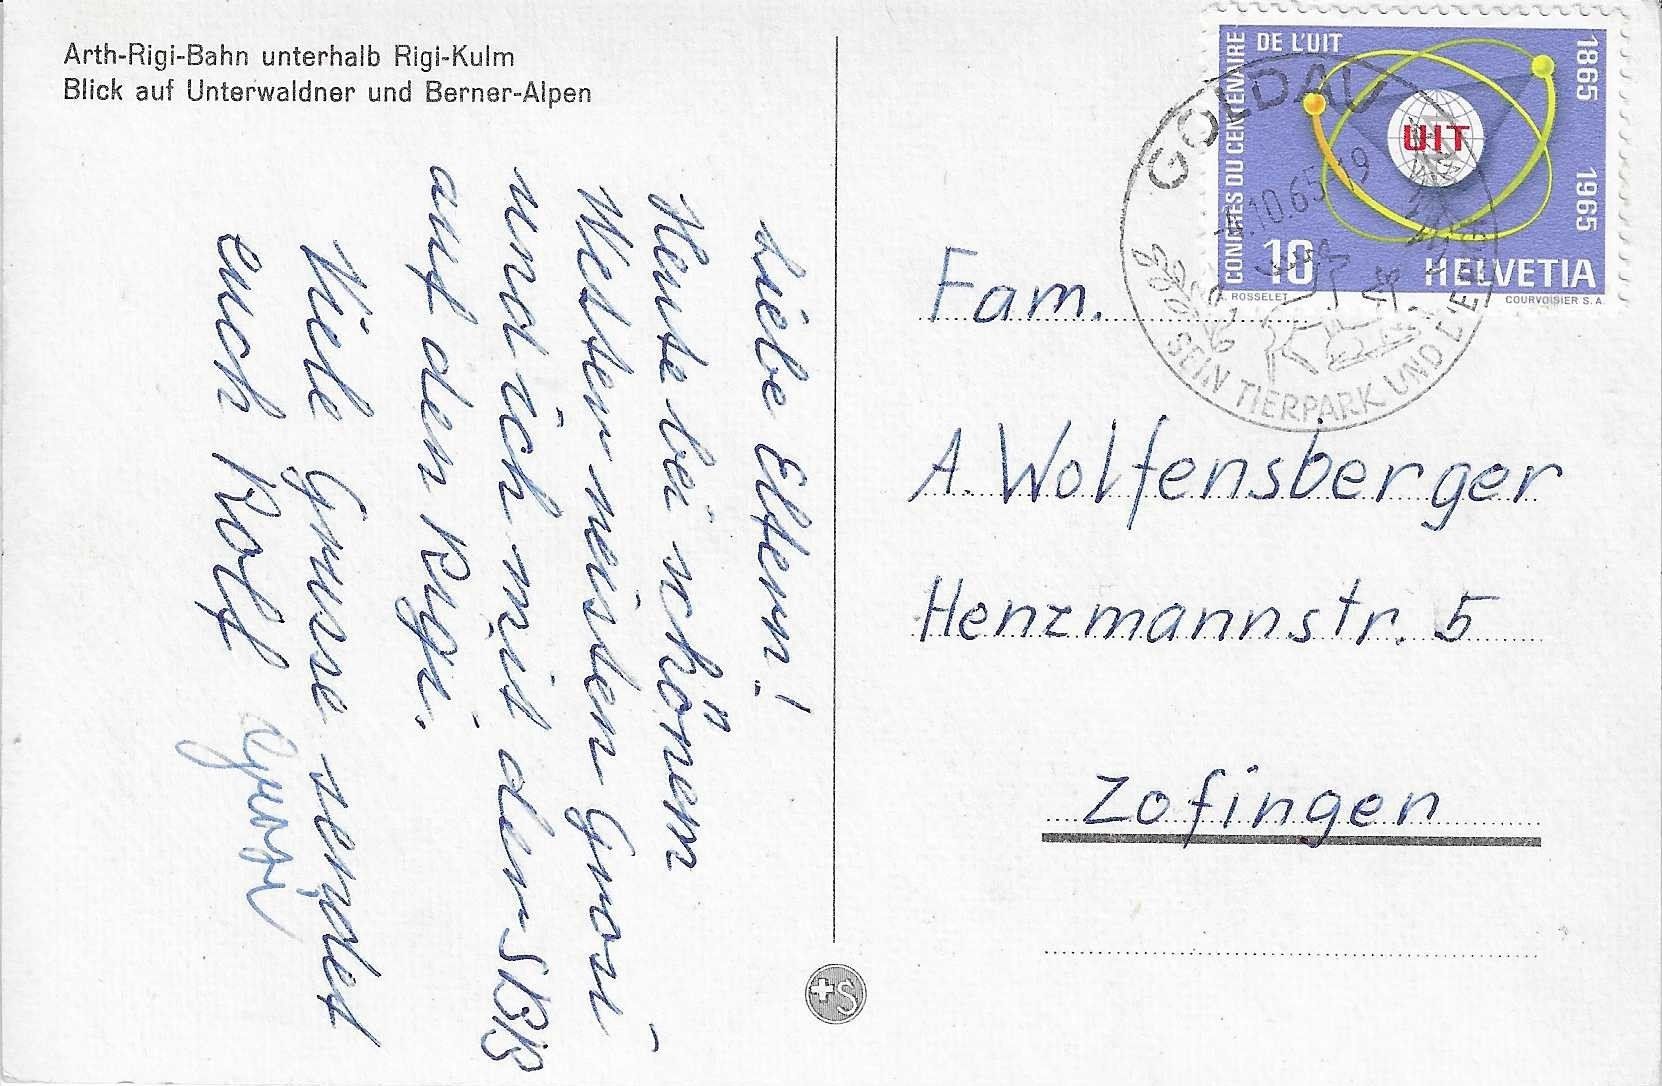 Arth-Rigi-Bahn unterhalb Rigi-Kulm
Blick auf Unterwaldner und Berner-Alpen
Liebe Eltern!
Heute bei schönem
Wetter reisten Grosi
und ich mit der SBB
auf den Rigi.
Viele Grüsse sendet
euch Rolf
Grosi
+S
CONGRÈS DU CENTENAIRE
DE L'UIT
1865
1965
UIT
10
HELVETIA
A. ROSSELET
COURVOISIER S.A.
GOLDAU
.10.65-19
SEIN TIERPARK UND
Fam.
A. Wolfensberger
Henzmannstr. 5
Zofingen